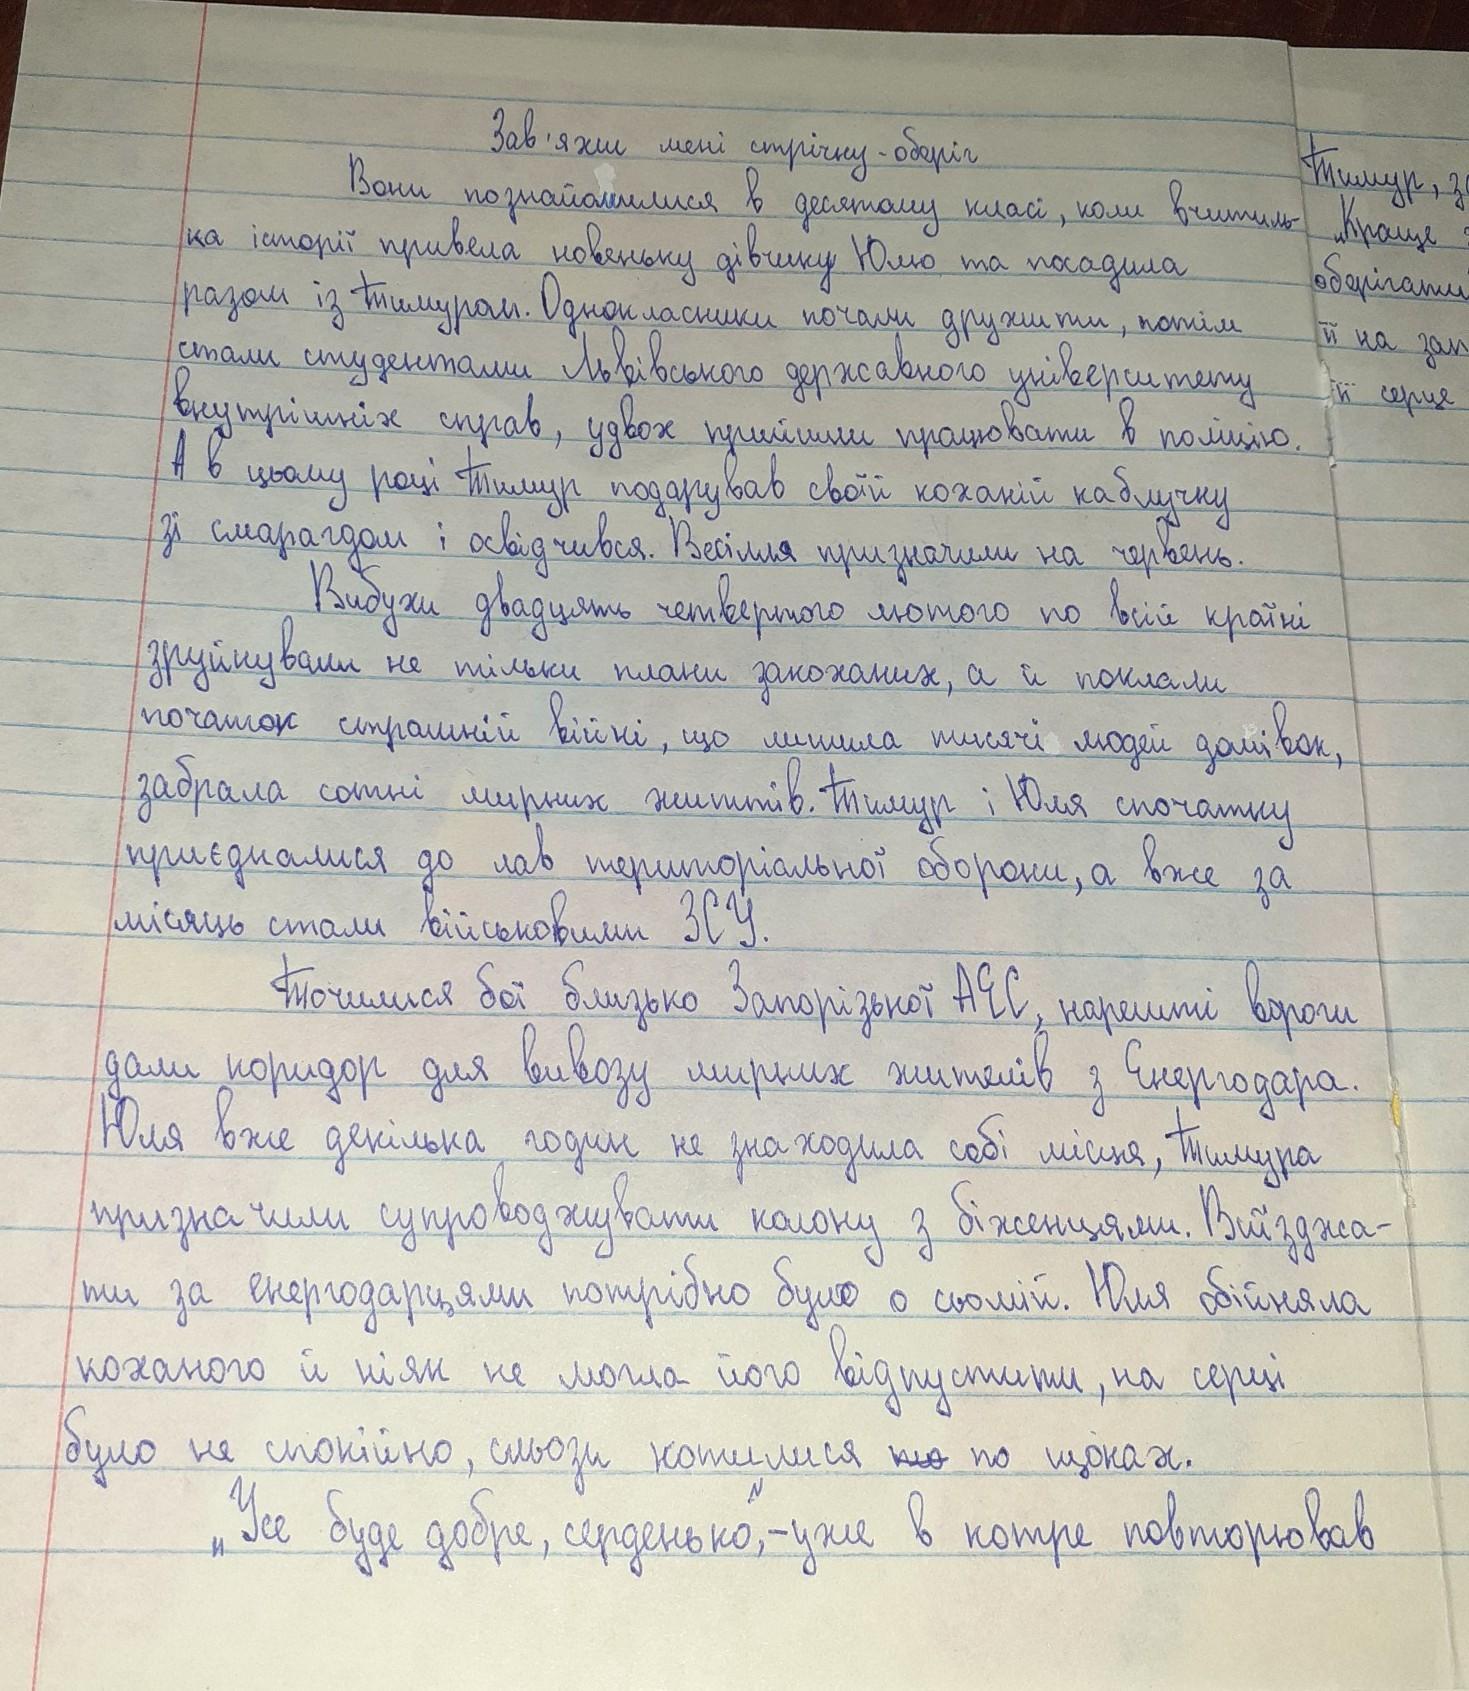 Зав'яжи мені стрічку-оберіг
Вони познайомилися в десятому класі, коли вчитель-
ка історії привела новеньку дівчину Юлю та посадила
разом із Тимуром. Однокласники почали дружити, потім
стали студентами Львівського державного університету
внутрішніх справ, удвох прийшли працювати в поліцію.
А в цьому році Тимур подарував своїй коханій каблучку
зі смарагдом і освідчився. Весілля призначили на червень.
Вибухи двадцять четвертого лютого по всій країні
зруйнували не тільки плани закоханих, а й поклали
початок страшній війні, що лишила тисячі людей домівок,
забрала сотні мирних життів. Тимур і Юля спочатку
приєдналися до лав територіальної оборони, а вже за
місяць стали військовими ЗСУ.
Точилися бої близько Запорізької АЕС, нарешті вороги
дали коридор для вивозу мирних жителів з Енергодара.
Юля вже декілька годин не знаходила собі місця, Тимура
призначили супроводжувати колону з біженцями. Виїзджа-
ти за енергодарцями потрібно було о сьомій. Юля обійняла
коханого й ніяк не могла його відпустити, на серці
було не спокійно, сльози котилися по щоках.
„Усе буде добре, серденько", - уже в котре повторював
Тимур, за
„Краще
оберігати
її на зап
її серце